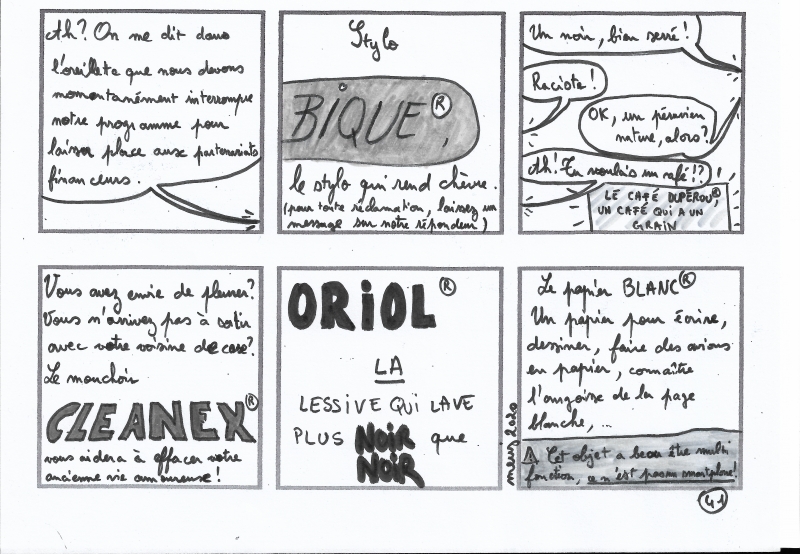 Ah? On me dit dans
l'oreillete que nous devons
momontanément interrompre
notre programme pour
laisser place aux partenariats
financeurs.
Stylo
BIQUE®,
le stylo qui rend chèvre.
(pour toute réclamation, laissez un
message sur notre répondeur)
Un noir, bien serré!
Raciste!
OK, un péruvien
nature, alors?
Ah! Tu voulais un café!?
LE CAFÉ DUPÉROU®,
UN CAFÉ QUI A UN
GRAIN
Vous avez envie de pleurer?
Vous n'arrivez pas à sortir
avec votre voisine de case?
Le mouchoir
CLEANEX®
vous aidera à effacer votre
ancienne vie amoureuse!
ORiOL®
LA
LESSiVE QUi LAVE
PLUS NOiR que
NOiR
Le papier BLANC®
Un papier pour écrire,
dessiner, faire des avions
en papier, connaître
l'angoisse de la page
blanche,...
⚠ Cet objet a beau être multi
fonction, ce n'est pas un smartphone!
meuz 2020
41